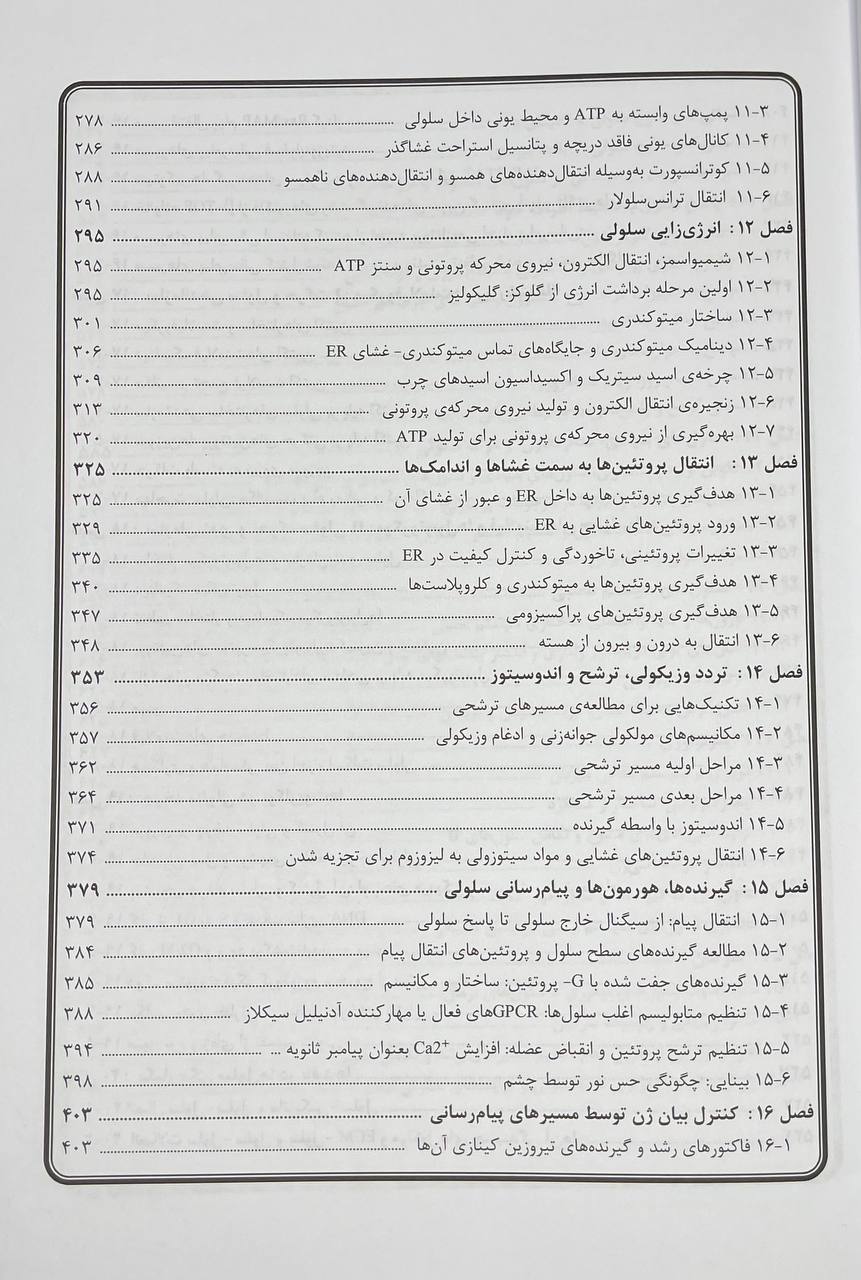 ۱۱-۳ پمپ‌های وابسته به ATP و محیط یونی داخل سلولی ........ ۲۷۸
۱۱-۴ کانال‌های یونی فاقد دریچه و پتانسیل استراحت غشاگذر ........ ۲۸۶
۱۱-۵ کوترانسپورت به‌وسیله انتقال‌دهنده‌های همسو و انتقال‌دهنده‌های ناهمسو ........ ۲۸۸
۱۱-۶ انتقال ترانس‌سلولار ........ ۲۹۱
فصل ۱۲: انرژی‌زایی سلولی ........ ۲۹۵
۱۲-۱ شیمیواسمز، انتقال الکترون، نیروی محرکه پروتونی و سنتز ATP ........ ۲۹۵
۱۲-۲ اولین مرحله برداشت انرژی از گلوکز: گلیکولیز ........ ۲۹۵
۱۲-۳ ساختار میتوکندری ........ ۳۰۱
۱۲-۴ دینامیک میتوکندری و جایگاه‌های تماس میتوکندری- غشای ER ........ ۳۰۶
۱۲-۵ چرخه‌ی اسید سیتریک و اکسیداسیون اسیدهای چرب ........ ۳۰۹
۱۲-۶ زنجیره‌ی انتقال الکترون و تولید نیروی محرکه‌ی پروتونی ........ ۳۱۳
۱۲-۷ بهره‌گیری از نیروی محرکه‌ی پروتونی برای تولید ATP ........ ۳۲۰
فصل ۱۳: انتقال پروتئین‌ها به سمت غشاها و اندامک‌ها ........ ۳۲۵
۱۳-۱ هدف‌گیری پروتئین‌ها به داخل ER و عبور از غشای آن ........ ۳۲۵
۱۳-۲ ورود پروتئین‌های غشایی به ER ........ ۳۲۹
۱۳-۳ تغییرات پروتئینی، تاخوردگی و کنترل کیفیت در ER ........ ۳۳۵
۱۳-۴ هدف‌گیری پروتئین‌ها به میتوکندری و کلروپلاست‌ها ........ ۳۴۰
۱۳-۵ هدف‌گیری پروتئین‌های پراکسیزومی ........ ۳۴۷
۱۳-۶ انتقال به درون و بیرون از هسته ........ ۳۴۸
فصل ۱۴: تردد وزیکولی، ترشح و اندوسیتوز ........ ۳۵۳
۱۴-۱ تکنیک‌هایی برای مطالعه‌ی مسیرهای ترشحی ........ ۳۵۶
۱۴-۲ مکانیسم‌های مولکولی جوانه‌زنی و ادغام وزیکولی ........ ۳۵۷
۱۴-۳ مراحل اولیه مسیر ترشحی ........ ۳۶۲
۱۴-۴ مراحل بعدی مسیر ترشحی ........ ۳۶۴
۱۴-۵ اندوسیتوز با واسطه گیرنده ........ ۳۷۱
۱۴-۶ انتقال پروتئین‌های غشایی و مواد سیتوزولی به لیزوزوم برای تجزیه شدن ........ ۳۷۴
فصل ۱۵: گیرنده‌ها، هورمون‌ها و پیام‌رسانی سلولی ........ ۳۷۹
۱۵-۱ انتقال پیام: از سیگنال خارج سلولی تا پاسخ سلولی ........ ۳۷۹
۱۵-۲ مطالعه گیرنده‌های سطح سلول و پروتئین‌های انتقال پیام ........ ۳۸۴
۱۵-۳ گیرنده‌های جفت شده با G- پروتئین: ساختار و مکانیسم ........ ۳۸۵
۱۵-۴ تنظیم متابولیسم اغلب سلول‌ها: GPCRهای فعال یا مهارکننده آدنیلیل سیکلاز ........ ۳۸۸
۱۵-۵ تنظیم ترشح پروتئین و انقباض عضله: افزایش Ca2⁺ بعنوان پیامبر ثانویه ... ........ ۳۹۴
۱۵-۶ بینایی: چگونگی حس نور توسط چشم ........ ۳۹۸
فصل ۱۶: کنترل بیان ژن توسط مسیرهای پیام‌رسانی ........ ۴۰۳
۱۶-۱ فاکتورهای رشد و گیرنده‌های تیروزین کینازی آن‌ها ........ ۴۰۳